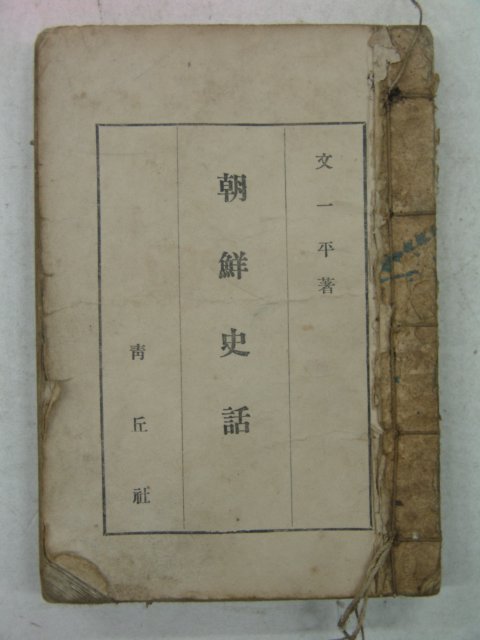 文一平著
朝鮮史話
靑丘社